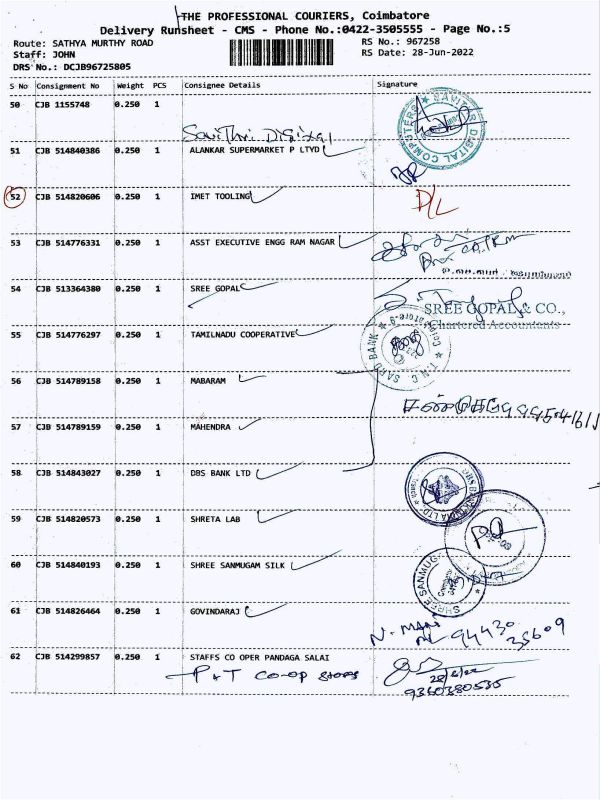 THE PROFESSIONAL COURIERS, Coimbatore
Delivery Runsheet - CMS - Phone No.:0422-3505555 - Page No.:5
Route: SATHYA MURTHY ROAD RS No.: 967258
Staff: JOHN RS Date: 28-Jun-2022
DRS No.: DCJB96725805
S No Consignment No Weight PCS Consignee Details Signature
50 CJB 1155748 0.250 1
Savithri Digital
SAVITHRI DIGITAL COMPUTERS
51 CJB 514840386 0.250 1 ALANKAR SUPERMARKET P LTYD
52 CJB 514820606 0.250 1 IMET TOOLING D/L
53 CJB 514776331 0.250 1 ASST EXECUTIVE ENGG RAM NAGAR
54 CJB 513364380 0.250 1 SREE GOPAL
SREE GOPAL & CO.,
Chartered Accountants
55 CJB 514776297 0.250 1 TAMILNADU COOPERATIVE
T.N.C. SARD BANK
56 CJB 514789158 0.250 1 MABARAM
57 CJB 514789159 0.250 1 MAHENDRA
58 CJB 514843027 0.250 1 DBS BANK LTD
DBS BANK INDIA LTD
59 CJB 514820573 0.250 1 SHRETA LAB
60 CJB 514840193 0.250 1 SHREE SANMUGAM SILK
SHREE SANMUG
61 CJB 514826464 0.250 1 GOVINDARAJ
N. MANI
94430
35609
62 CJB 514299857 0.250 1 STAFFS CO OPER PANDAGA SALAI
P & T CO-OP stores
28/6/22
9360380535